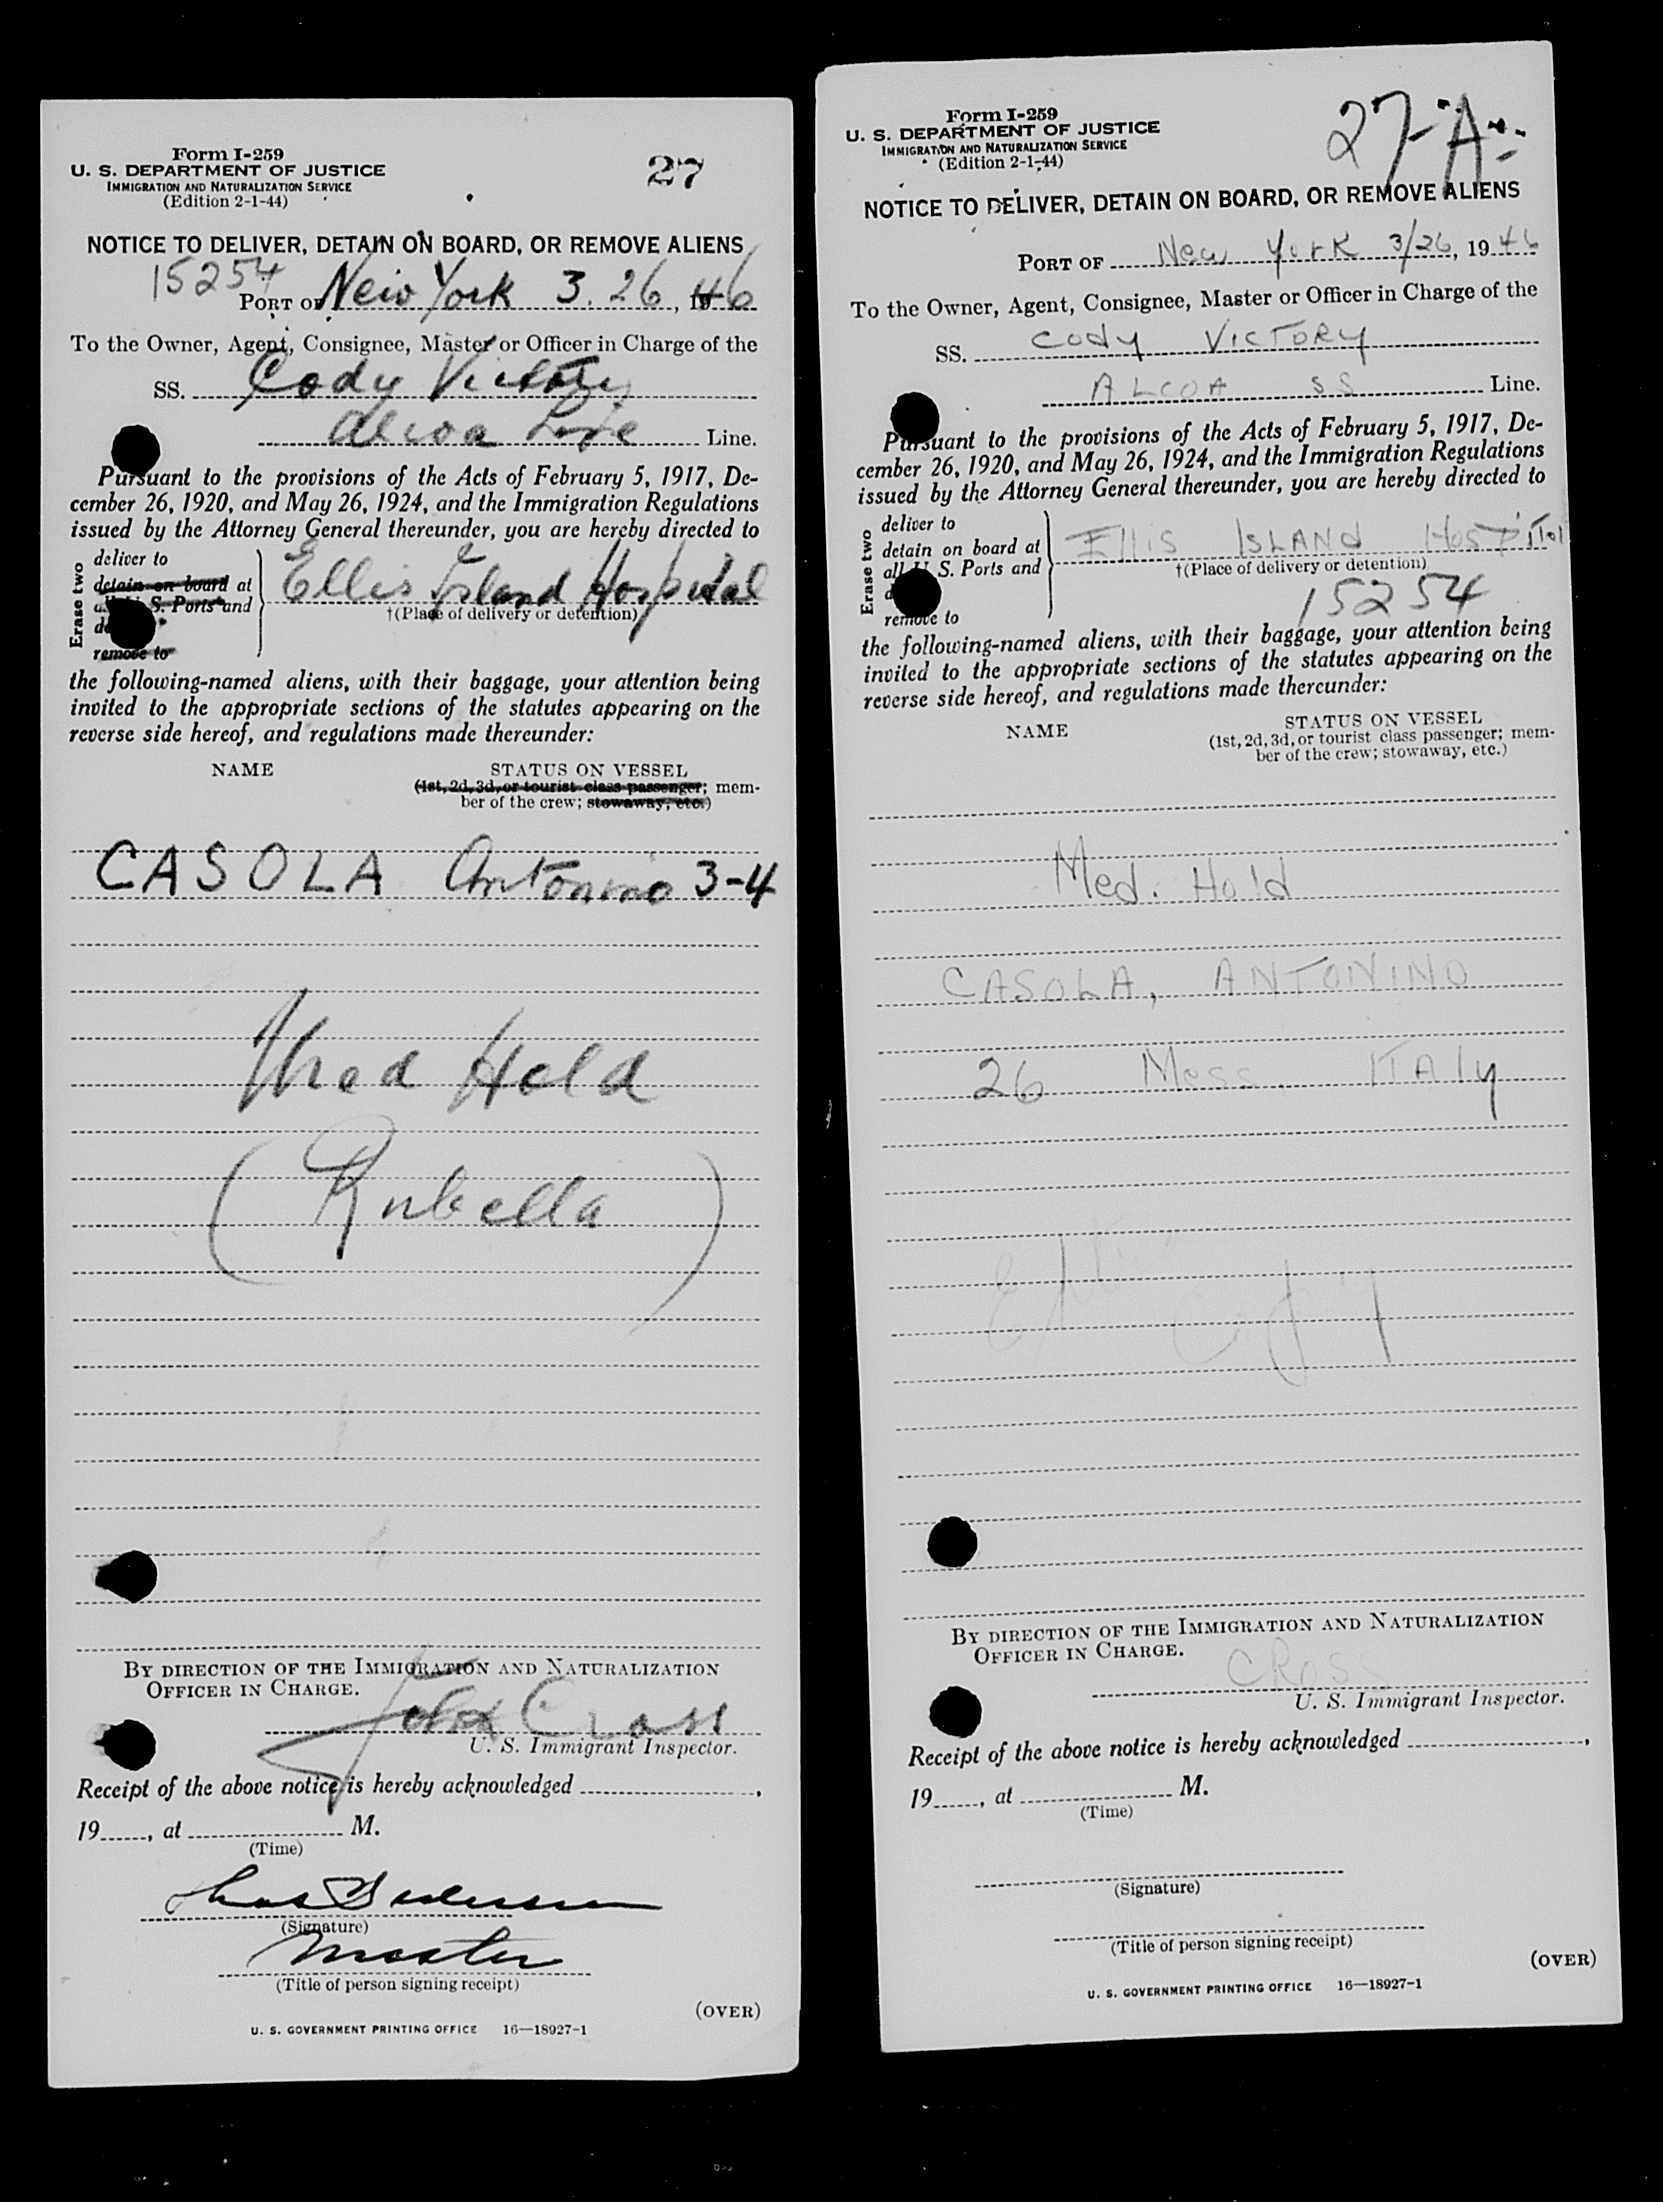 Form I-259
U. S. DEPARTMENT OF JUSTICE
IMMIGRATION AND NATURALIZATION SERVICE
(Edition 2-1-44)
27
NOTICE TO DELIVER, DETAIN ON BOARD, OR REMOVE ALIENS
15254
PORT OF New York 3.26, 1946
To the Owner, Agent, Consignee, Master or Officer in Charge of the
SS. Cody Victory
Alcoa Line Line.
Pursuant to the provisions of the Acts of February 5, 1917, De-
cember 26, 1920, and May 26, 1924, and the Immigration Regulations
issued by the Attorney General thereunder, you are hereby directed to
Erase two
deliver to
detain on board at
S. Ports and
remove to
Ellis Island Hospital
†(Place of delivery or detention)
the following-named aliens, with their baggage, your attention being
invited to the appropriate sections of the statutes appearing on the
reverse side hereof, and regulations made thereunder:
NAME
STATUS ON VESSEL
(1st, 2d, 3d, or tourist class passenger; mem-
ber of the crew; stowaway, etc.)
CASOLA Antonino 3-4
Med Hold
(Rubella)
BY DIRECTION OF THE IMMIGRATION AND NATURALIZATION
OFFICER IN CHARGE.
Felix Cross
U. S. Immigrant Inspector.
Receipt of the above notice is hereby acknowledged ,
19 , at M.
(Time)
(Signature)
Master
(Title of person signing receipt)
(OVER)
U. S. GOVERNMENT PRINTING OFFICE 16—18927-1
Form I-259
U. S. DEPARTMENT OF JUSTICE
IMMIGRATION AND NATURALIZATION SERVICE
(Edition 2-1-44)
27-A
NOTICE TO DELIVER, DETAIN ON BOARD, OR REMOVE ALIENS
PORT OF New York 3/26, 1946
To the Owner, Agent, Consignee, Master or Officer in Charge of the
SS. Cody VICTORY
ALCOA SS Line.
Pursuant to the provisions of the Acts of February 5, 1917, De-
cember 26, 1920, and May 26, 1924, and the Immigration Regulations
issued by the Attorney General thereunder, you are hereby directed to
Erase two
deliver to
detain on board at
all U. S. Ports and
remove to
Ellis ISLAND HOSPITol
†(Place of delivery or detention)
15254
the following-named aliens, with their baggage, your attention being
invited to the appropriate sections of the statutes appearing on the
reverse side hereof, and regulations made thereunder:
NAME
STATUS ON VESSEL
(1st, 2d, 3d, or tourist class passenger; mem-
ber of the crew; stowaway, etc.)
Med. Hold
CASOLA, ANTONINO
26 Mess. ITALY
copy
BY DIRECTION OF THE IMMIGRATION AND NATURALIZATION
OFFICER IN CHARGE.
CROSS
U. S. Immigrant Inspector.
Receipt of the above notice is hereby acknowledged ,
19 , at M.
(Time)
(Signature)
(Title of person signing receipt)
(OVER)
U. S. GOVERNMENT PRINTING OFFICE 16—18927-1